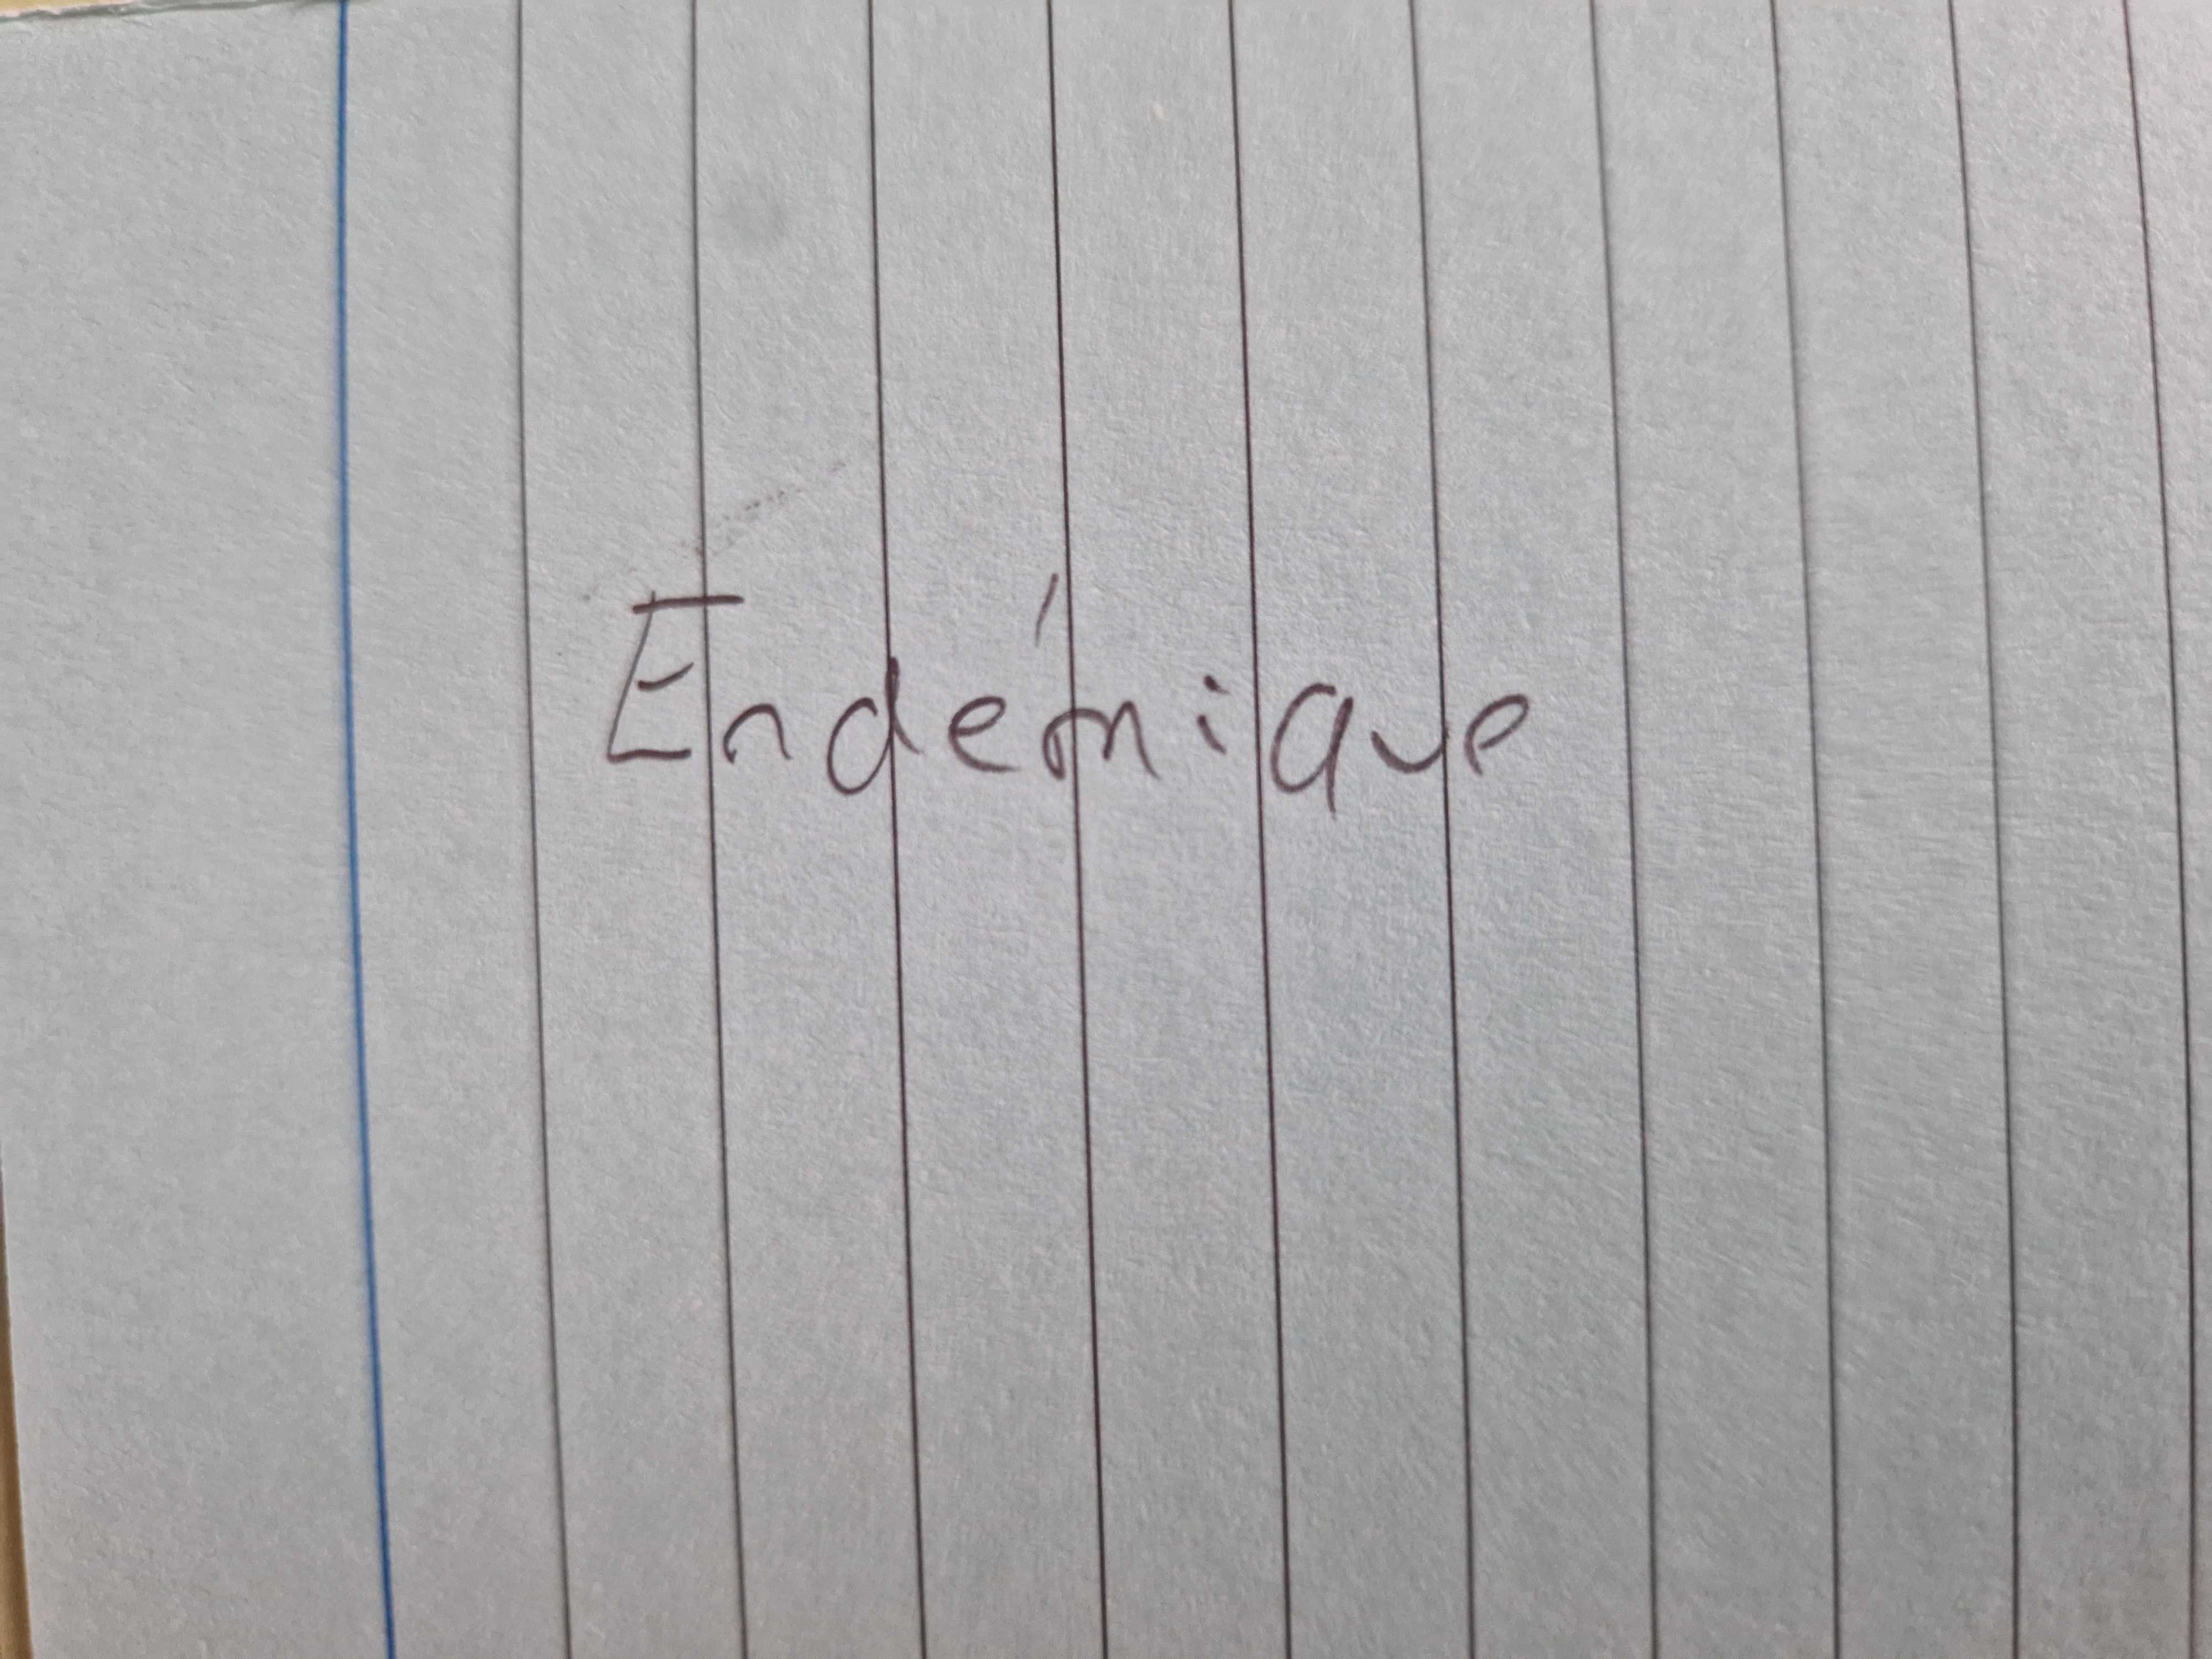 Endémique